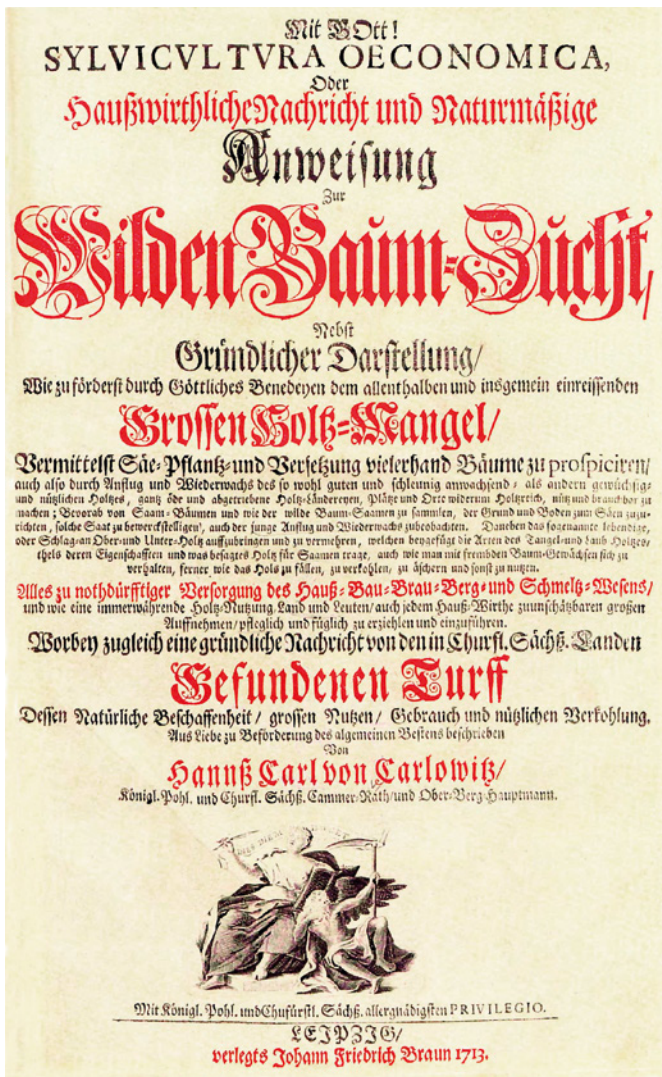 Mit GOtt!
SYLVICVLTVRA OECONOMICA,
Oder
Haußwirthliche Nachricht und Naturmäßige
Anweisung
Zur
Wilden Baum-Zucht/
Nebst
Gründlicher Darstellung/
Wie zu förderst durch Göttliches Benedeyen dem allenthalben und insgemein einreissenden
Grossen Holtz-Mangel/
Vermittelst Säe-Pflantz-und Versetzung vielerhand Bäume zu prospiciren/
auch also durch Anflug und Wiederwachs des so wohl guten und schleunig anwachsend, als andern gewüchsig-
und nützlichen Holtzes, gantz öde und abgetriebene Holtz-Ländereyen, Plätze und Orte widerum Holtzreich, nütz und brauchbar zu
machen; Bevorab von Saam-Bäumen und wie der wilde Baum-Saamen zu sammlen, der Grund und Boden zum Säen zuzu-
richten, solche Saat zu bewerckstelligen, auch der junge Anflug und Wiederwachs zubeobachten. Daneben das sogenannte lebendige,
oder Schlag-an Ober-und Unter-Holtz auffzubringen und zu vermehren, welchen beygefügt die Arten des Tangel-und Laub-Holtzes/
theils deren Eigenschafften und was besagtes Holtz für Saamen trage, auch wie man mit frembden Baum-Gewächsen sich zu
verhalten, ferner wie das Holtz zu fällen, zu verkohlen, zu äschern und sonst zu nutzen.
Alles zu nothdürfftiger Versorgung des Hauß-Bau-Brau-Berg-und Schmeltz-Wesens/
und wie eine immerwährende Holtz-Nutzung Land und Leuten/auch jedem Hauß-Wirthe zu unschätzbaren großen
Auffnehmen/pfleglich und füglich zu erziehlen und einzuführen.
Worbey zugleich eine gründliche Nachricht von den in Churfl. Sächß. Landen
Gefundenen Turff
Dessen Natürliche Beschaffenheit/ grossen Nutzen/ Gebrauch und nützlichen Verkohlung.
Aus Liebe zu Beförderung des algemeinen Bestens beschrieben
Von
Hannß Carl von Carlowitz/
Königl. Pohl. und Churfl. Sächß. Cammer-Rath/und Ober-Berg-Hauptmann.
Mit Königl. Pohl. und Chufürstl. Sächß. allergnädigsten PRIVILEGIO.
LEJPZJG/
verlegts Johann Friedrich Braun 1713.